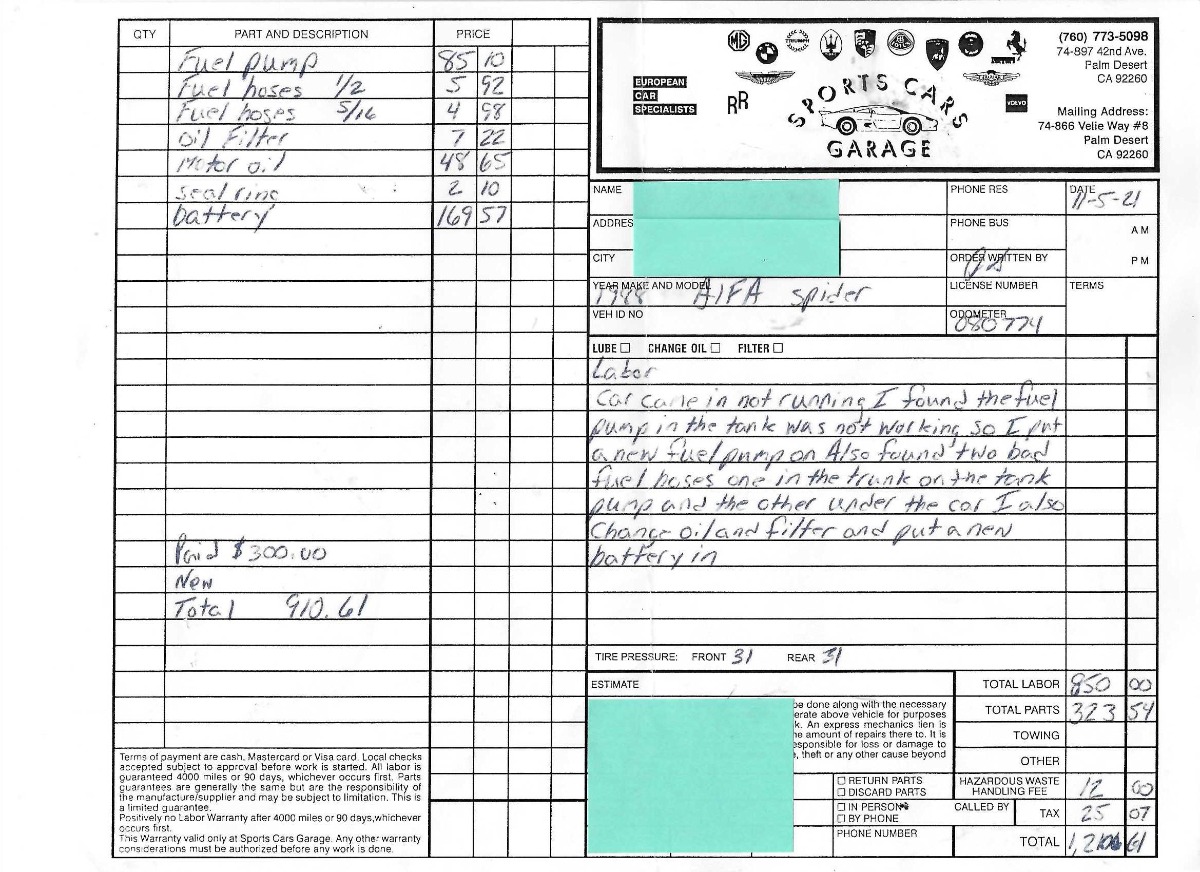 QTY PART AND DESCRIPTION PRICE
Fuel pump 85 10
Fuel hoses 1/2 5 92
Fuel hoses 5/16 4 98
Oil Filter 7 22
Motor oil 48 65
seal ring 2 10
battery 169 57
Paid $300.00
New
Total 910.61
Terms of payment are cash, Mastercard or Visa card. Local checks
accepted subject to approval before work is started. All labor is
guaranteed 4000 miles or 90 days, whichever occurs first. Parts
guarantees are generally the same but are the responsibility of
the manufacture/supplier and may be subject to limitation. This is
a limited guarantee.
Positively no Labor Warranty after 4000 miles or 90 days,whichever
occurs first.
This Warranty valid only at Sports Cars Garage. Any other warranty
considerations must be authorized before any work is done.
EUROPEAN
CAR
SPECIALISTS
MG
RR
VOLVO
SPORTS CARS
GARAGE
(760) 773-5098
74-897 42nd Ave.
Palm Desert
CA 92260
Mailing Address:
74-866 Velie Way #8
Palm Desert
CA 92260
NAME PHONE RES DATE 11-5-21
ADDRES PHONE BUS A M
CITY ORDER WRITTEN BY P M
YEAR MAKE AND MODEL 1988 AlFA spider LICENSE NUMBER TERMS
VEH ID NO ODOMETER 080774
LUBE CHANGE OIL FILTER
Labor
Car came in not running I found the fuel
pump in the tank was not working so I put
a new fuel pump on Also found two bad
fuel hoses one in the trunk on the tank
pump and the other under the car I also
Change oil and filter and put a new
battery in
TIRE PRESSURE: FRONT 31 REAR 31
ESTIMATE
be done along with the necessary
erate above vehicle for purposes
k. An express mechanics lien is
he amount of repairs there to. It is
esponsible for loss or damage to
, theft or any other cause beyond
RETURN PARTS
DISCARD PARTS
IN PERSON
BY PHONE
CALLED BY
PHONE NUMBER
TOTAL LABOR 850 00
TOTAL PARTS 323 54
TOWING
OTHER
HAZARDOUS WASTE
HANDLING FEE 12 00
TAX 25 07
TOTAL 61